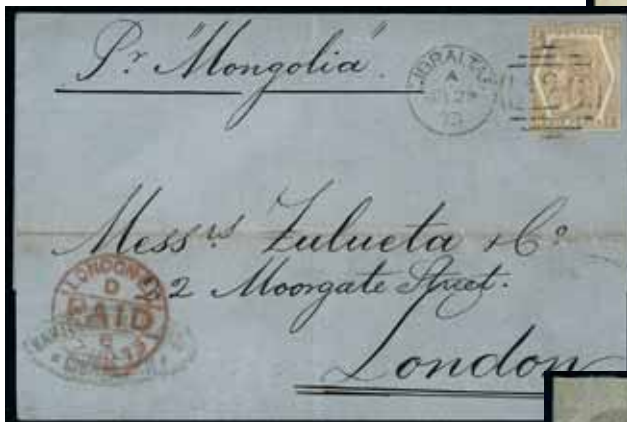 Pr "Mongolia"
GIBRALTAR
A
Messrs Zulueta & Co
2 Moorgate Street.
London
LONDON
D
PAID